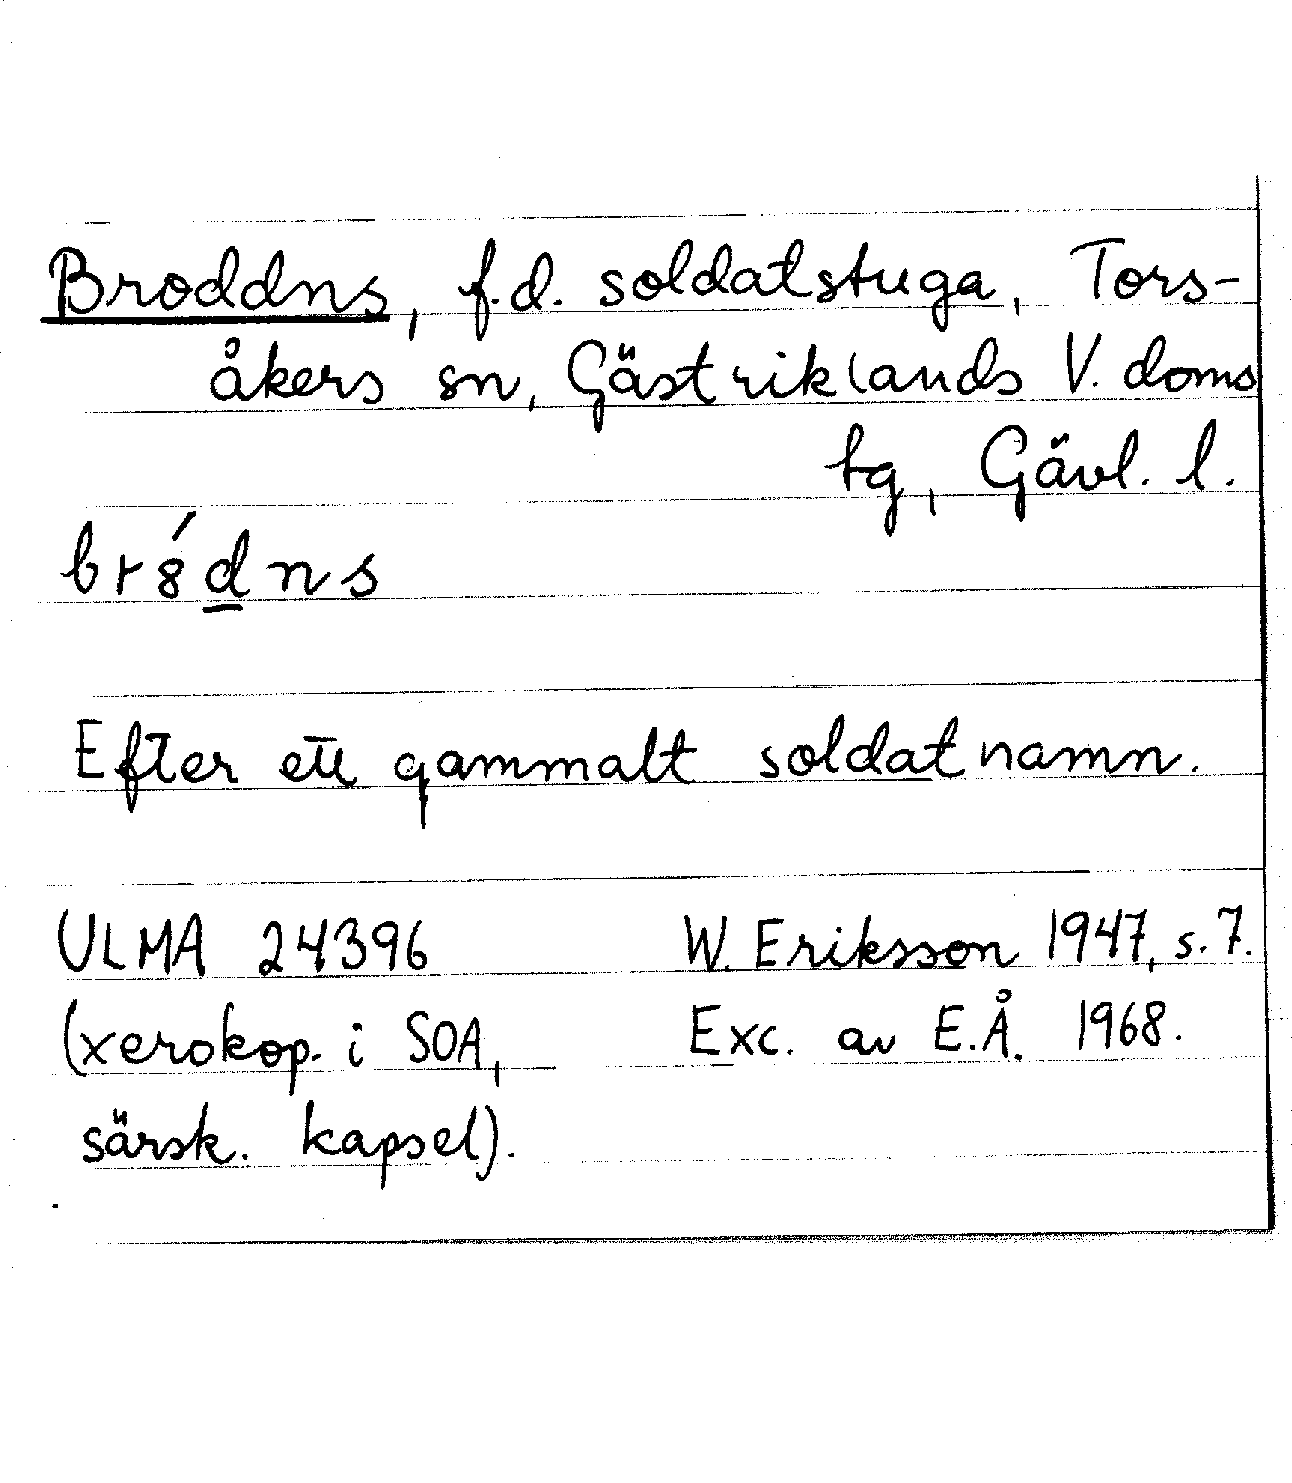 Broddns, f.d. soldatstuga, Tors-
åkers sn, Gästriklands V. doms
tg, Gävl. l.
br8́d̲ns
Efter ett gammalt soldatnamn.
ULMA 24396 W. Eriksson 1947, s. 7.
(xerokop. i SOA, Exc. av E.Å. 1968.
särsk. kapsel).